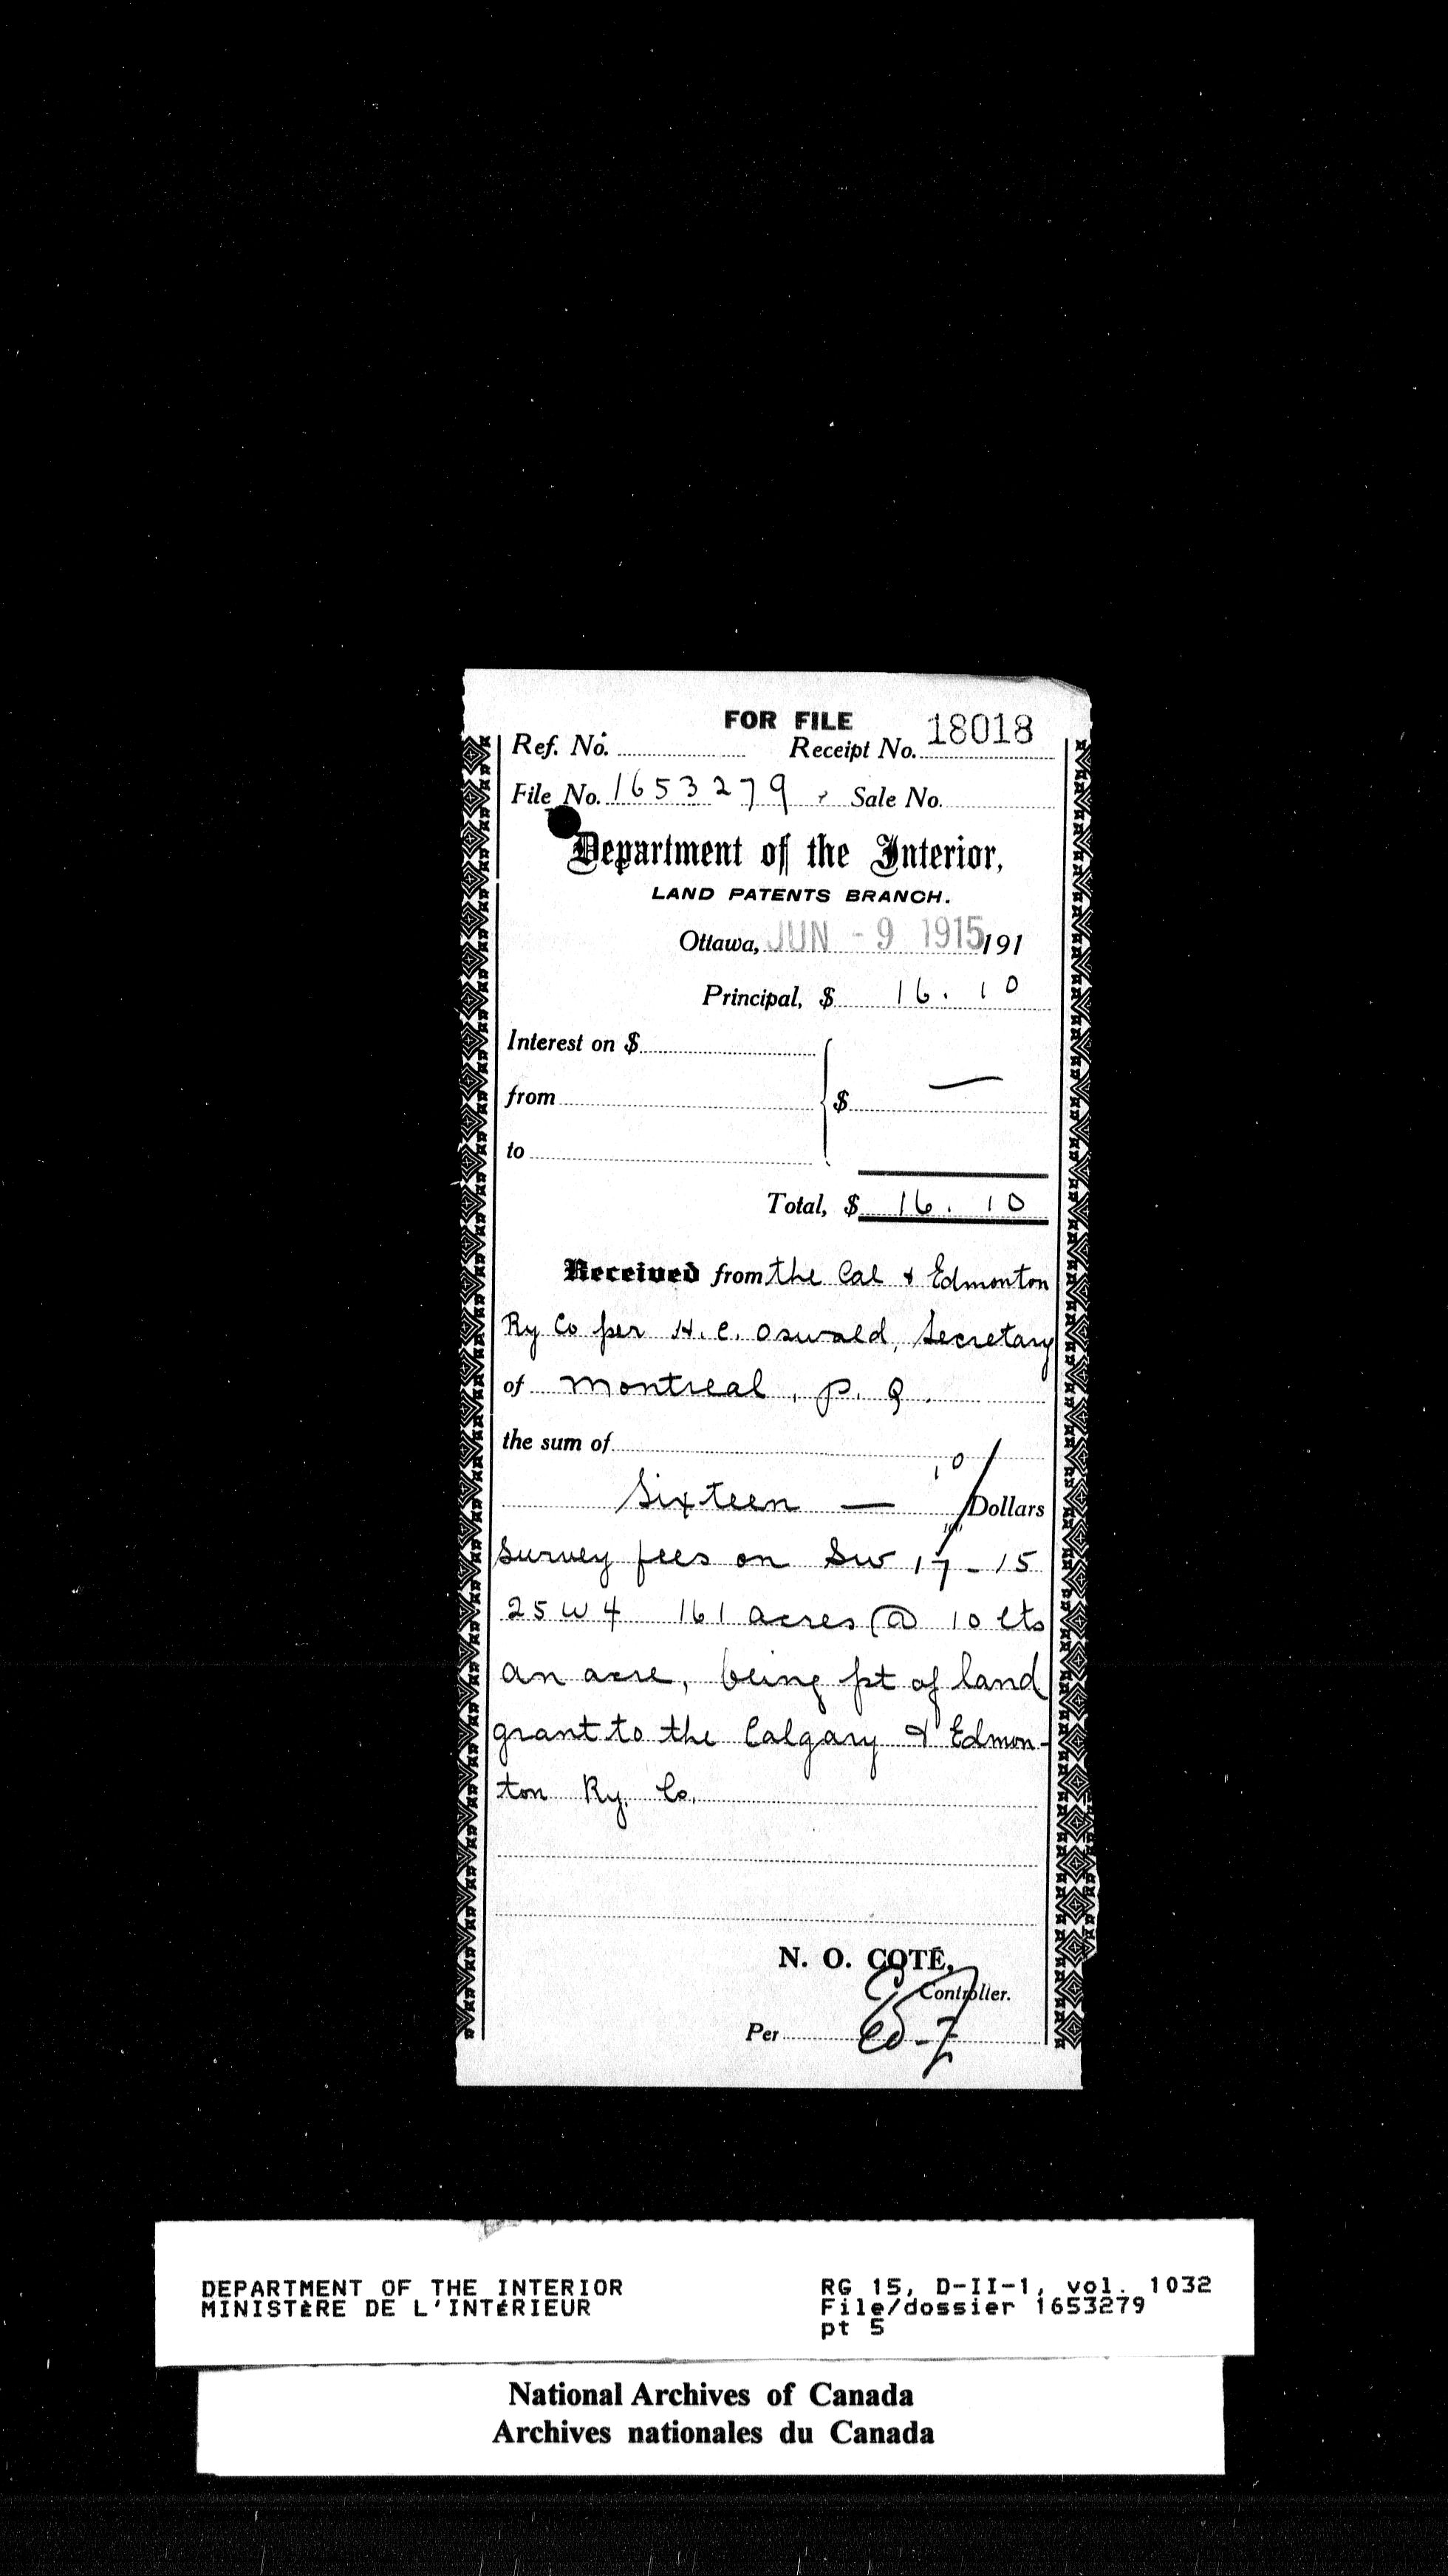 FOR FILE
Ref. No. Receipt No. 18018
File No. 1653279 Sale No.
Department of the Interior,
LAND PATENTS BRANCH.
Ottawa, JUN - 9 1915 191
Principal, $ 16.10
Interest on $
from $ —
to
Total, $ 16.10
Received from the Cal & Edmonton
Ry Co per H. C. Oswald, Secretary
of Montreal, P. Q.
the sum of
Sixteen — 10/100 Dollars
Survey fees on SW 17 - 15
25 W 4 161 acres @ 10 cts
an acre, being pt of land
grant to the Calgary & Edmon-
ton Ry. Co.
N. O. COTÉ,
Controller.
Per
DEPARTMENT OF THE INTERIOR RG 15, D-II-1, vol. 1032
MINISTÈRE DE L'INTÉRIEUR File/dossier 1653279
pt 5
National Archives of Canada
Archives nationales du Canada